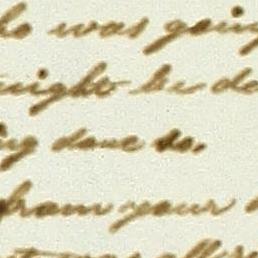 who was going
might be de
ing done so.
from your